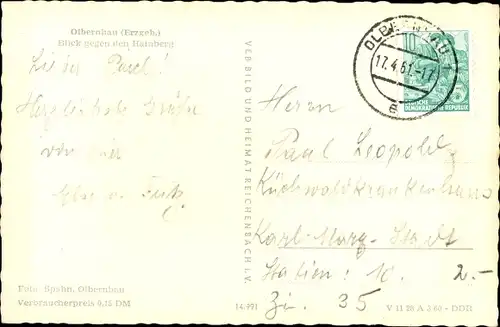 Olbernhau (Erzgeb.)
Blick gegen den Hainberg
Lieber Paul!
Herzlichste Grüße
von hier
Else u. Fritz
Foto Spahn, Olbernhau
Verbraucherpreis 0,15 DM
VEB BILD UND HEIMAT REICHENBACH I. V.
14/491
OLBERNHAU 1
17.4.61.-17
a
10
DEUTSCHE
DEMOKRATISCHE REPUBLIK
Herrn
Paul Leopold
Küchwaldkrankenhaus
Karl-Marx-Stadt
Station: 10.
2.-
Zi. 35
V 11 28 A 3 60 - DDR